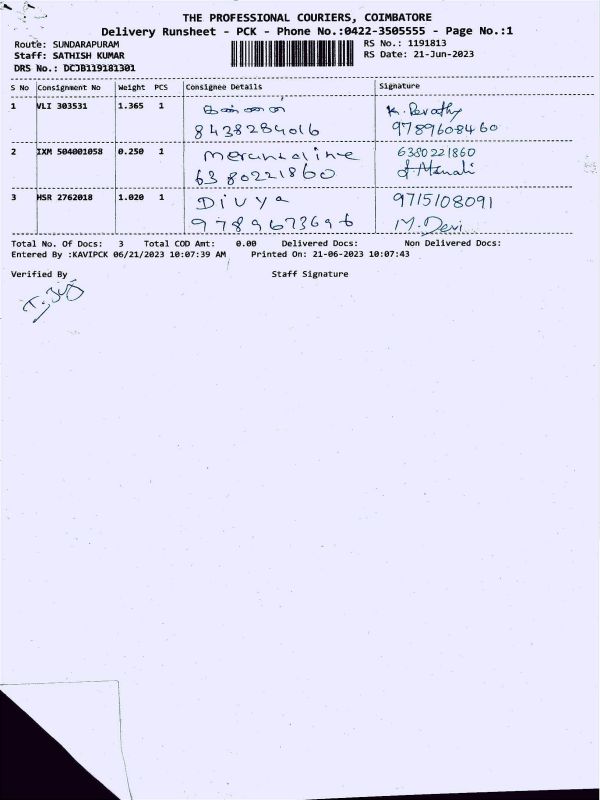 THE PROFESSIONAL COURIERS, COIMBATORE
Delivery Runsheet - PCK - Phone No.:0422-3505555 - Page No.:1
Route: SUNDARAPURAM RS No.: 1191813
Staff: SATHISH KUMAR RS Date: 21-Jun-2023
DRS No.: DCJB119181301
S No Consignment No Weight PCS Consignee Details Signature
1 VLI 303531 1.365 1 K. Revathy
8438284016 9789608460
2 IXM 504001058 0.250 1 6380221860
6380221860
3 HSR 2762018 1.020 1 Divya 9715108091
9789673696 M. Devi
Total No. Of Docs: 3 Total COD Amt: 0.00 Delivered Docs: Non Delivered Docs:
Entered By :KAVIPCK 06/21/2023 10:07:39 AM Printed On: 21-06-2023 10:07:43
Verified By Staff Signature